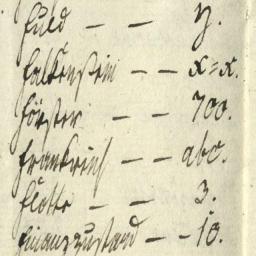 Fuld — — y.
Falkenstein — — x=x.
Förster — — 700.
Frankreich — — abc.
Flotte — — 3.
Finanzzustand — — 10.